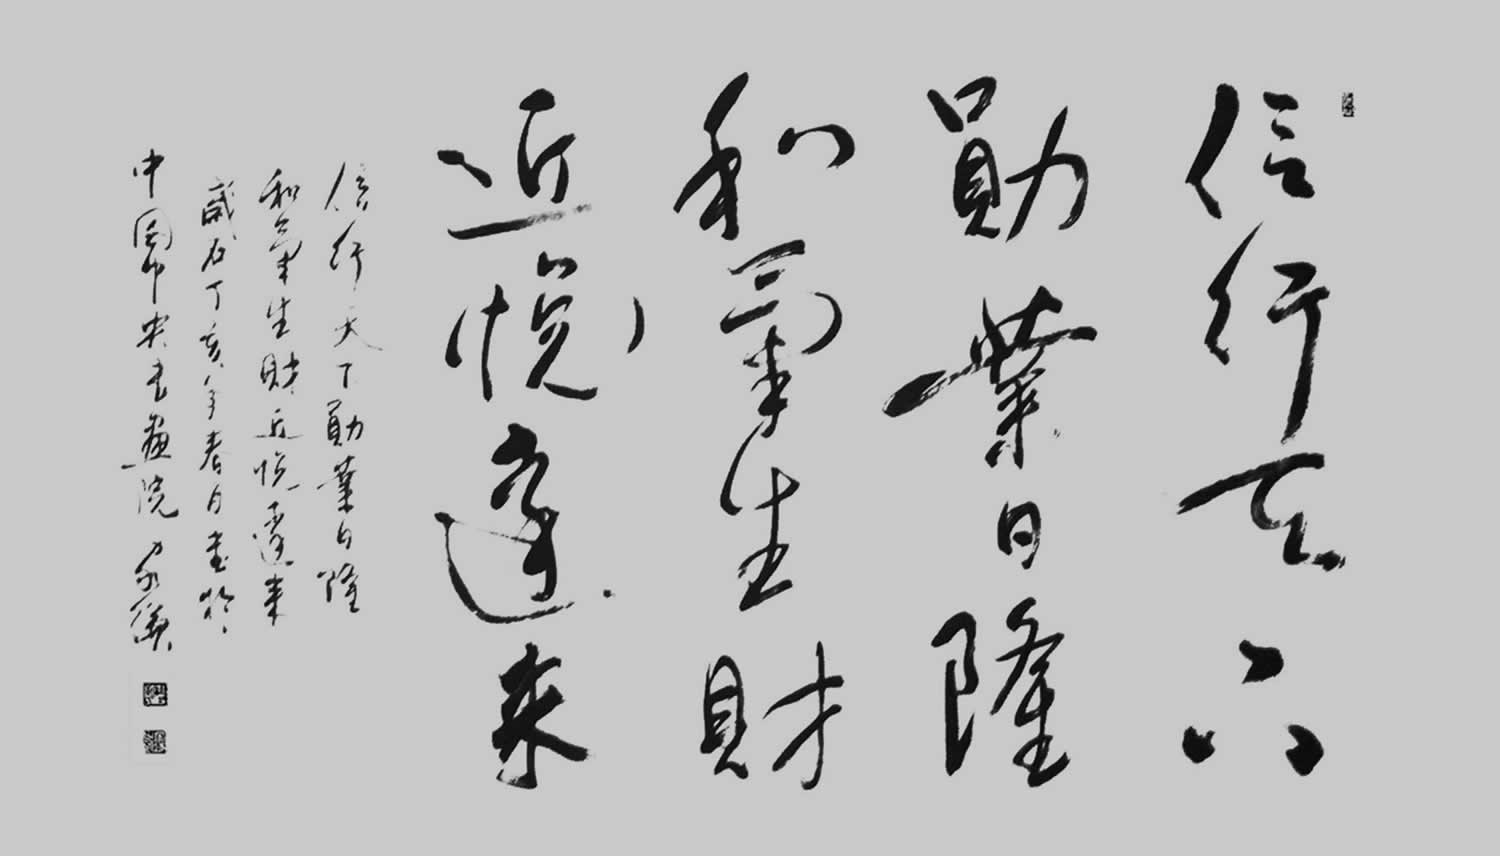 信行天下
勛業日隆
和氣生財
近悅遠來
信行天下勛業日隆
和氣生財近悅遠來
歲在丁亥年春月書於
中國中央書畫院